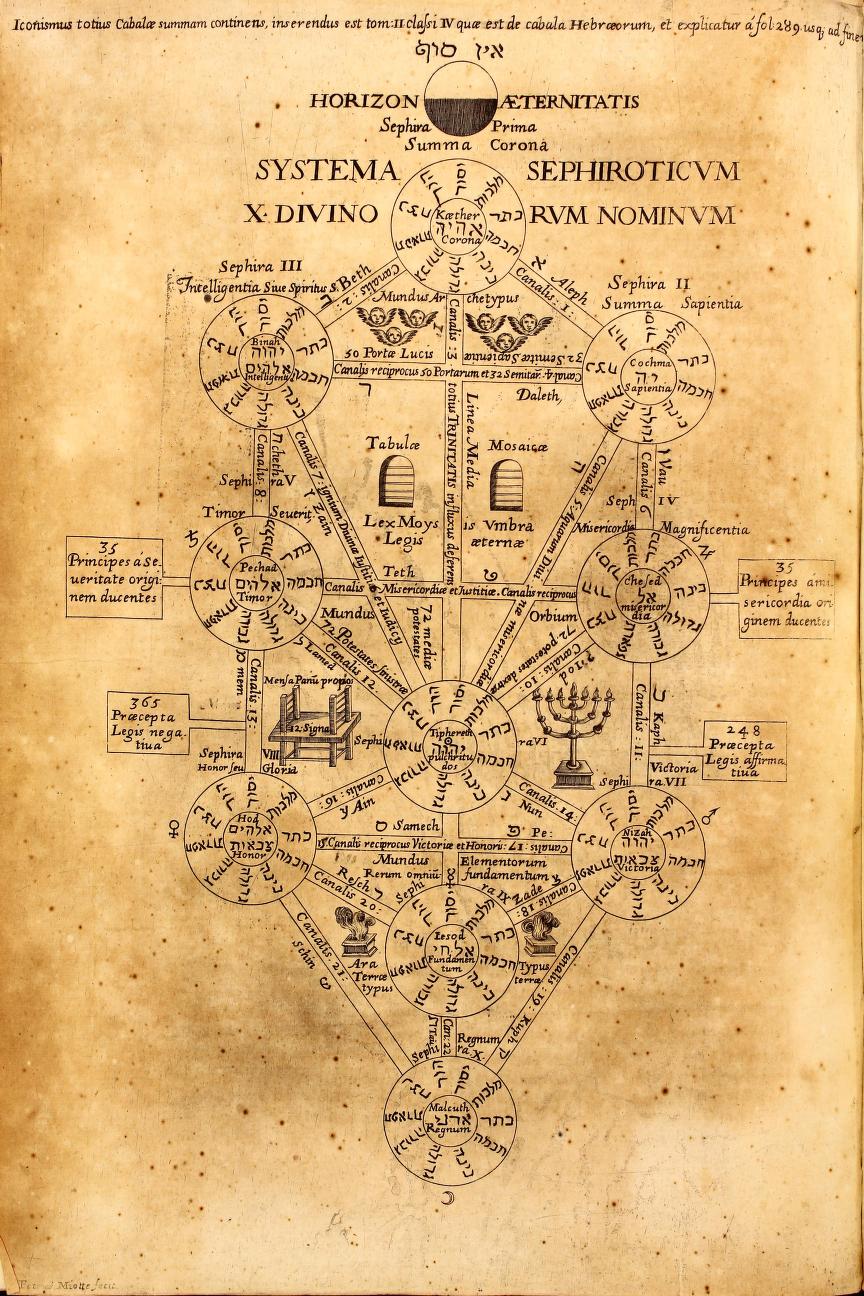 Iconismus totius Cabalæ summam continens, inserendus est tom: II classi IV quæ est de cabala Hebræorum, et explicatur á fol: 289. usq; ad finem
אין סוף
HORIZON ÆTERNITATIS
Sephira Prima
Summa Corona
SYSTEMA SEPHIROTICVM
X. DIVINO RVM NOMINVM
Kæther
אהיה
Corona
Sephira III
Intelligentia Siue Spiritus S.
ב Beth
Canalis: 2:
א Aleph
Canalis: 1:
Sephira II
Summa Sapientia
Mundus Archetypus
Canalis: 3
50 Portæ Lucis
32 Semitæ Sapientiæ
Canalis reciprocus 50 Portarum et 32 Semitar. Canalis 4.
ד
Daleth,
Binah
יהוה
אלהים
Intelligentia
Cochma
יה
Sapientia
totius TRINITATIS influxus deferens
Linea Media
Tabulæ Mosaicæ
Lex Moys is Vmbra
Legis æternæ
ח cheth
Canalis: 8:
Sephi ra V
Timor Seuerit.
Canalis 7:
ז Zain
ה
Canalis 5
ו Vau
Canalis 6
Seph IV
Misericordia Magnificentia
♄
♃
35
Principes á Se-
ueritate origi-
nem ducentes
Pechad
אלהים
Timor
Chesed
אל
misericor
dia
35
Principes á mi
sericordia ori
ginem ducentes
Teth ט
Canalis Misericordiæ et Iustitiæ. Canalis reciprocus
Mundus Orbium
72 mediæ
potestates
72 Potestates sinistræ
Canalis 12
ל Lamed
72 potestates dextræ
Canalis: 10:
י Iod
מ mem
Canalis: 13:
כ Kaph
Canalis: 11:
Mensa Panũ propos
12 Signa
365
Præcepta
Legis nega-
tiua
248
Præcepta
Legis affirma
tiua
Sephi ra VI
Tiphereth
יהוה
pulchritu
dos
Sephira VIII
Honor seu Gloria
Victoria
Sephi ra VII
Canalis: 16:
ע Ain
Canalis. 14:
נ Nun
♀
♂
Hod
אלהים
צבאות
Honor
Nizah
יהוה
צבאות
Victoria
ס Samech פ Pe:
15 Canalis reciprocus Victoriæ et Honoris: 17: Canalis
Mundus Elementorum
Rerum omniũ fundamentum
Resch ר
Canalis 20:
Sephi ra IX
Zade צ
Canalis 18:
Iesod
אל חי
Fundamen
tum
Ara
Terræ
typus
Typus
terræ
Canalis. 21:
Schin ש
Canalis: 19:
Kuph ק
ת Tau
Can: 22
Regnum
Sephi ra X.
Malcuth
אדני
Regnum
כתר
חכמה
בינה
גדולה
גבורה
תפארת
נצח
הוד
יסוד
מלכות
☽
Miotte fecit